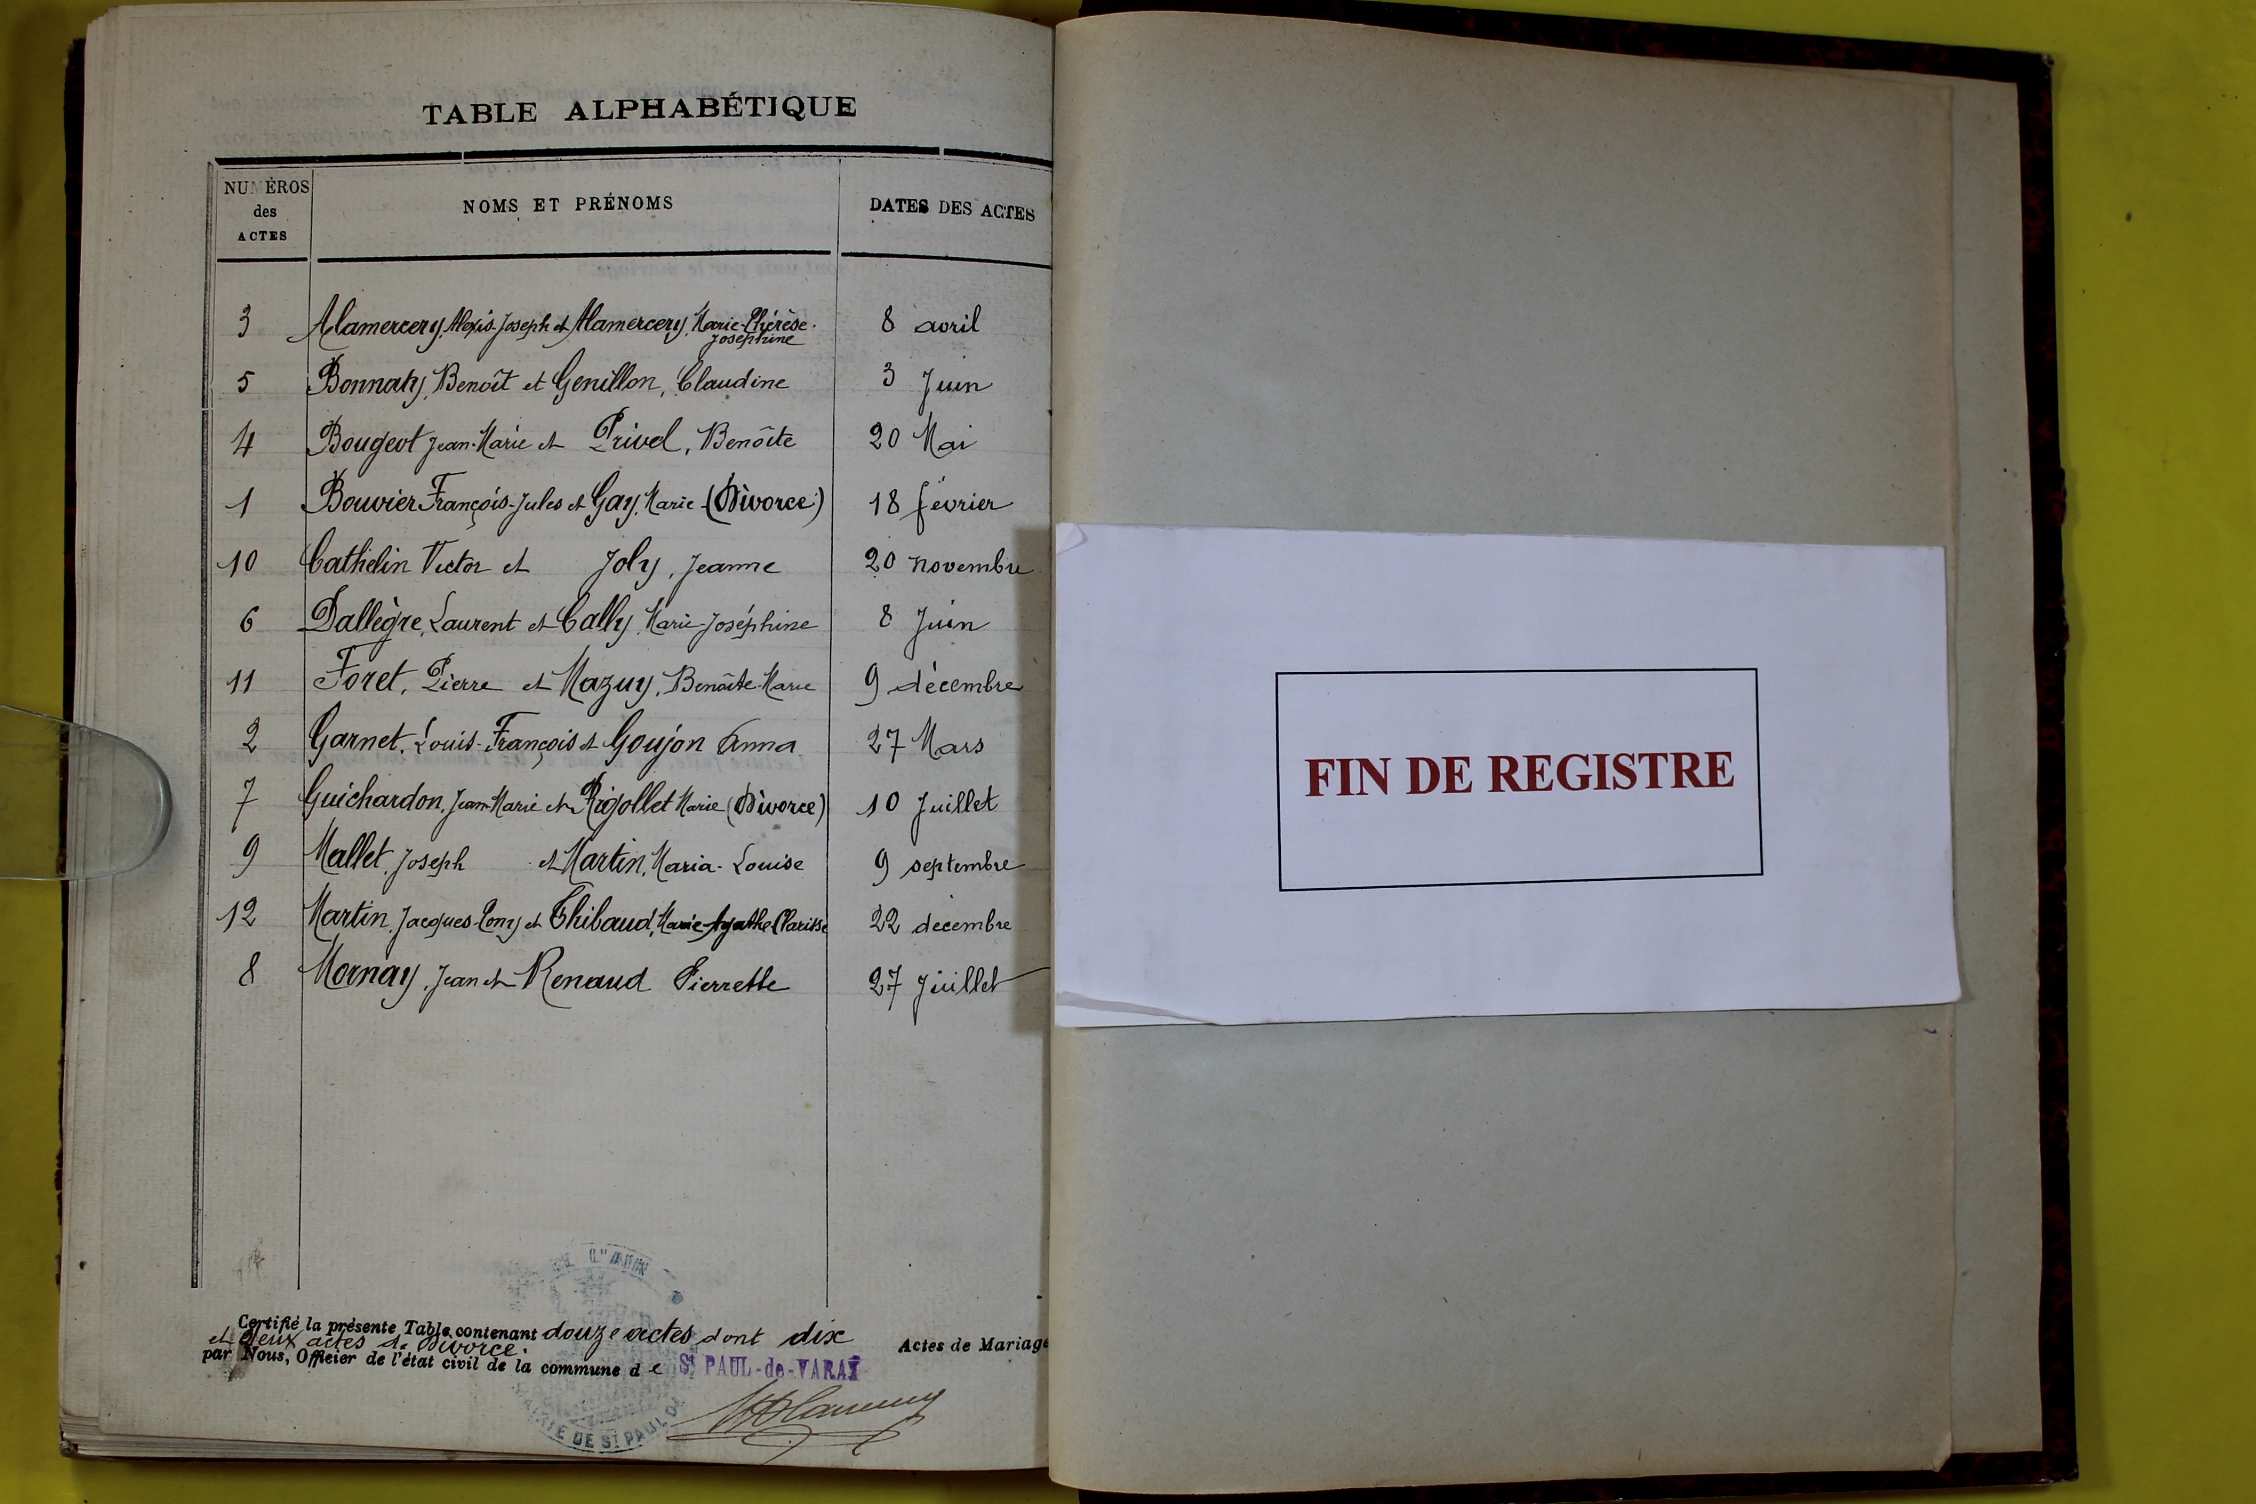 TABLE ALPHABÉTIQUE
NUMÉROS des ACTES
NOMS ET PRÉNOMS
DATES DES ACTES
3 Alamercery, Alexis-Joseph et Alamercery, Marie-Thérèse- 8 avril
Joséphine
5 Bonnaty, Benoît et Genillon, Claudine 3 Juin
4 Bougeot Jean-Marie et Privel, Benoîte 20 Mai
1 Bouvier François-Jules et Gay, Marie (Divorce) 18 février
10 Cathelin Victor et Joly, Jeanne 20 novembre
6 Dallègre, Laurent et Cally, Marie-Joséphine 8 Juin
11 Foret, Pierre et Mazuy, Benoîte-Marie 9 décembre
2 Garnet, Louis-François et Goujon Anna 27 Mars
7 Guichardon, Jean-Marie et Rigollet Marie (Divorce) 10 Juillet
9 Mallet, Joseph et Martin, Maria-Louise 9 septembre
12 Martin, Jacques-Tony et Thibaud, Marie-Agathe-Clarisse 22 décembre
8 Mornay, Jean et Renaud Pierrette 27 Juillet
Certifié la présente Table contenant douze actes dont dix Actes de Mariage
et deux actes de divorce.
par Nous, Officier de l'état civil de la commune de St PAUL-de-VARAX
MAIRIE DE St PAUL DE
FIN DE REGISTRE